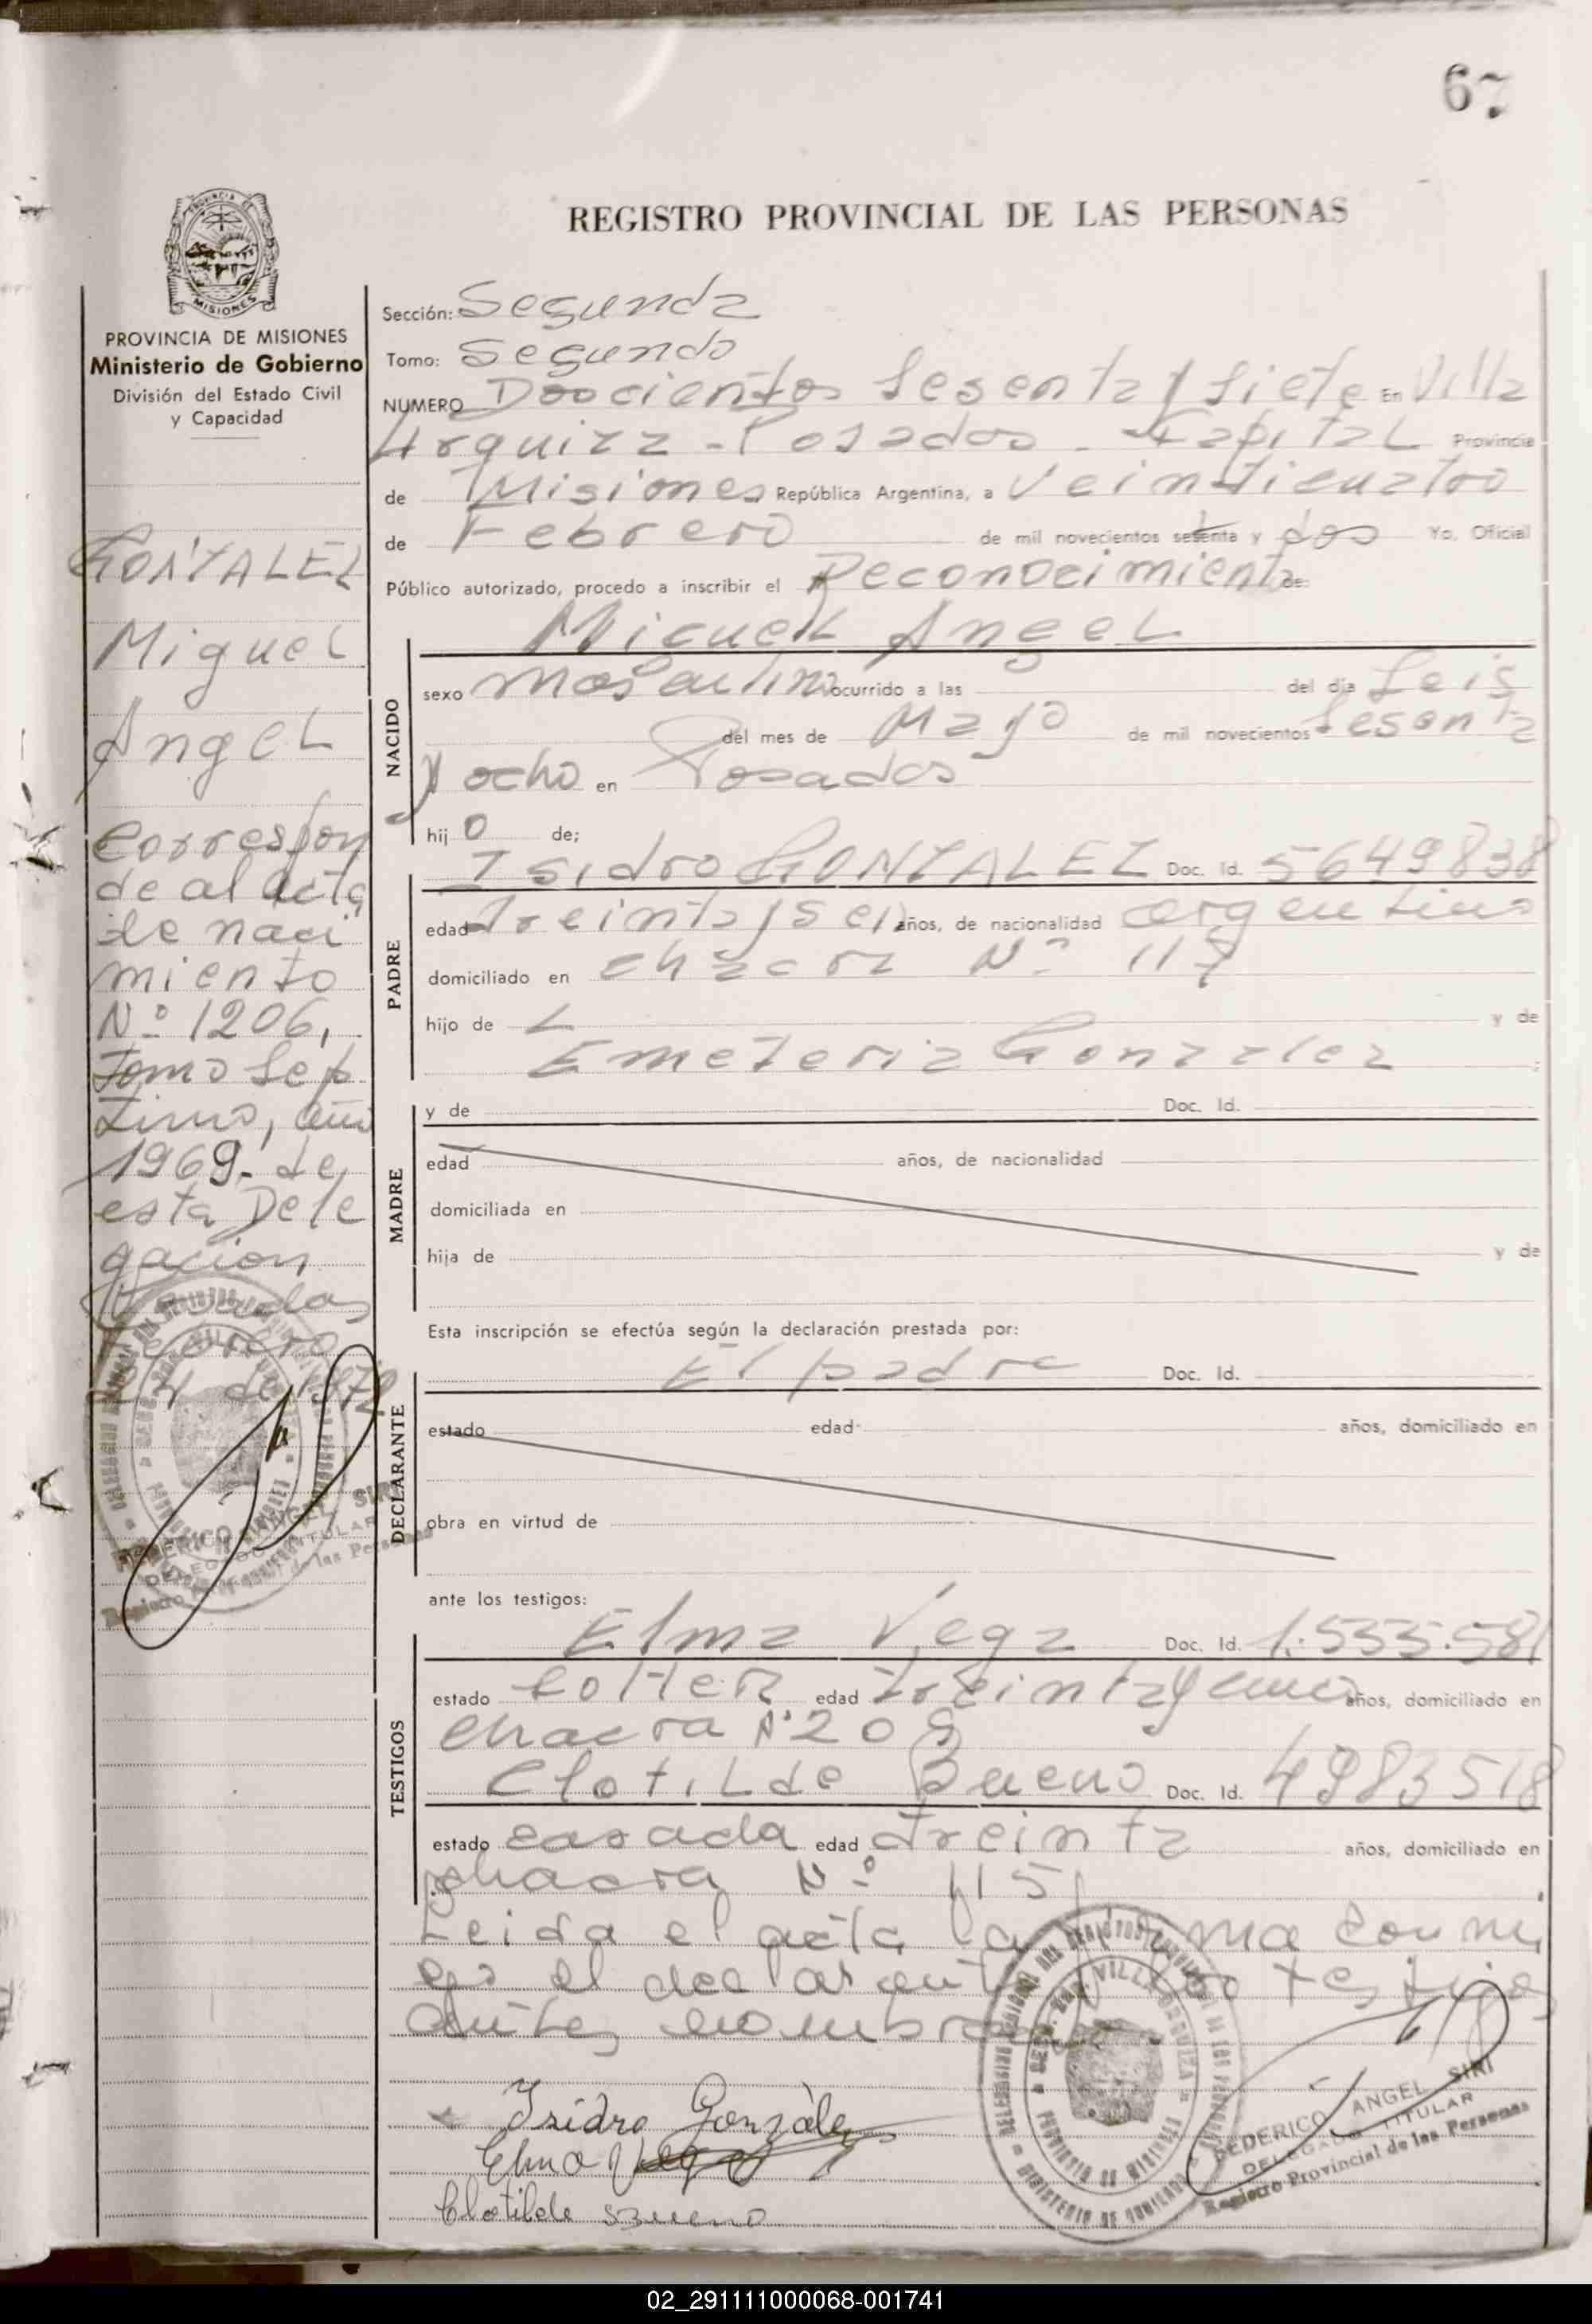 67
REGISTRO PROVINCIAL DE LAS PERSONAS
PROVINCIA DE
MISIONES
PROVINCIA DE MISIONES
Ministerio de Gobierno
División del Estado Civil
y Capacidad
GONZALEZ
Miguel
Angel
Correspon
de al acta
de naci
miento
Nº 1206,
Tomo Sep
timo, año
1969. de
esta Dele
gación
Posadas,
Febrero
24 de 1972
FEDERICO ANGEL SIRI
DELEGADO TITULAR
Registro Provincial de las Personas
Sección: Segunda
Tomo: Segundo
NUMERO Doocientos Sesenta y Siete En Villa
Urquiza - Posadas - Capital Provincia
de Misiones República Argentina, a Veinticuatro
de Febrero de mil novecientos setenta y dos Yo, Oficial
Público autorizado, procedo a inscribir el Reconocimiento de:
Miguel Angel
NACIDO
sexo masculino ocurrido a las del día Seis
del mes de Mayo de mil novecientos Sesenta
y ocho en Posadas
hij o de;
Isidro GONZALEZ Doc. Id. 5649838
PADRE
edad treinta y seis años, de nacionalidad argentino
domiciliado en chacra Nº 117
hijo de y de
Emeteria Gonzalez
MADRE
y de Doc. Id.
edad años, de nacionalidad
domiciliada en
hija de y de
Esta inscripción se efectúa según la declaración prestada por:
El padre Doc. Id.
DECLARANTE
estado edad años, domiciliado en
obra en virtud de
ante los testigos:
Elma Vega Doc. Id. 1.533.581
TESTIGOS
estado soltera edad treinta y cinco años, domiciliado en
chacra Nº 209
Clotilde Bueno Doc. Id. 4983518
estado casada edad treinta años, domiciliado en
chacra Nº 115
Leida el acta la firma conmi
go el declarante y los testigos
antes nombrados
Isidro González
Elma Vega
Clotilde S Bueno
VILLA URQUIZA
PROVINCIA DE MISIONES
MINISTERIO DE GOBIERNO
FEDERICO ANGEL SIRI
DELEGADO TITULAR
Registro Provincial de las Personas
02_291111000068-001741